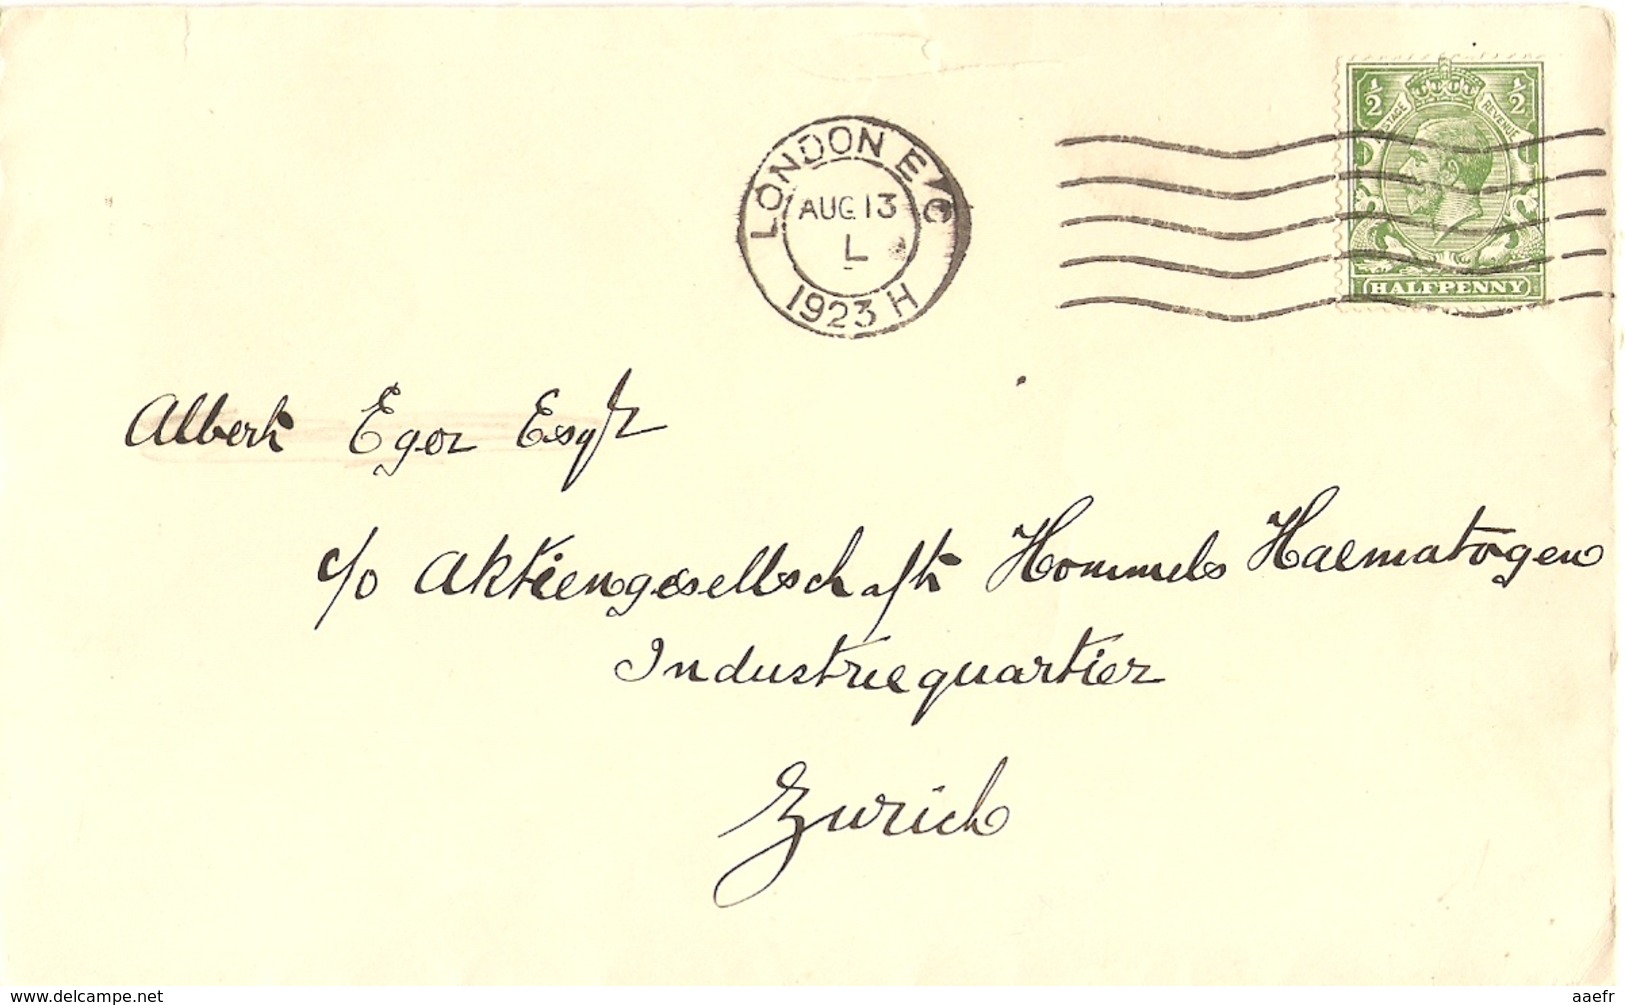 LONDON E.C
AUG 13
L
1923 H
1/2 POSTAGE REVENUE 1/2
HALFPENNY
Albert Eger Esqr
c/o Aktiengesellschaft Hommels Haematogen
Industriequartier
Zurich
www.delcampe.net
aaefr